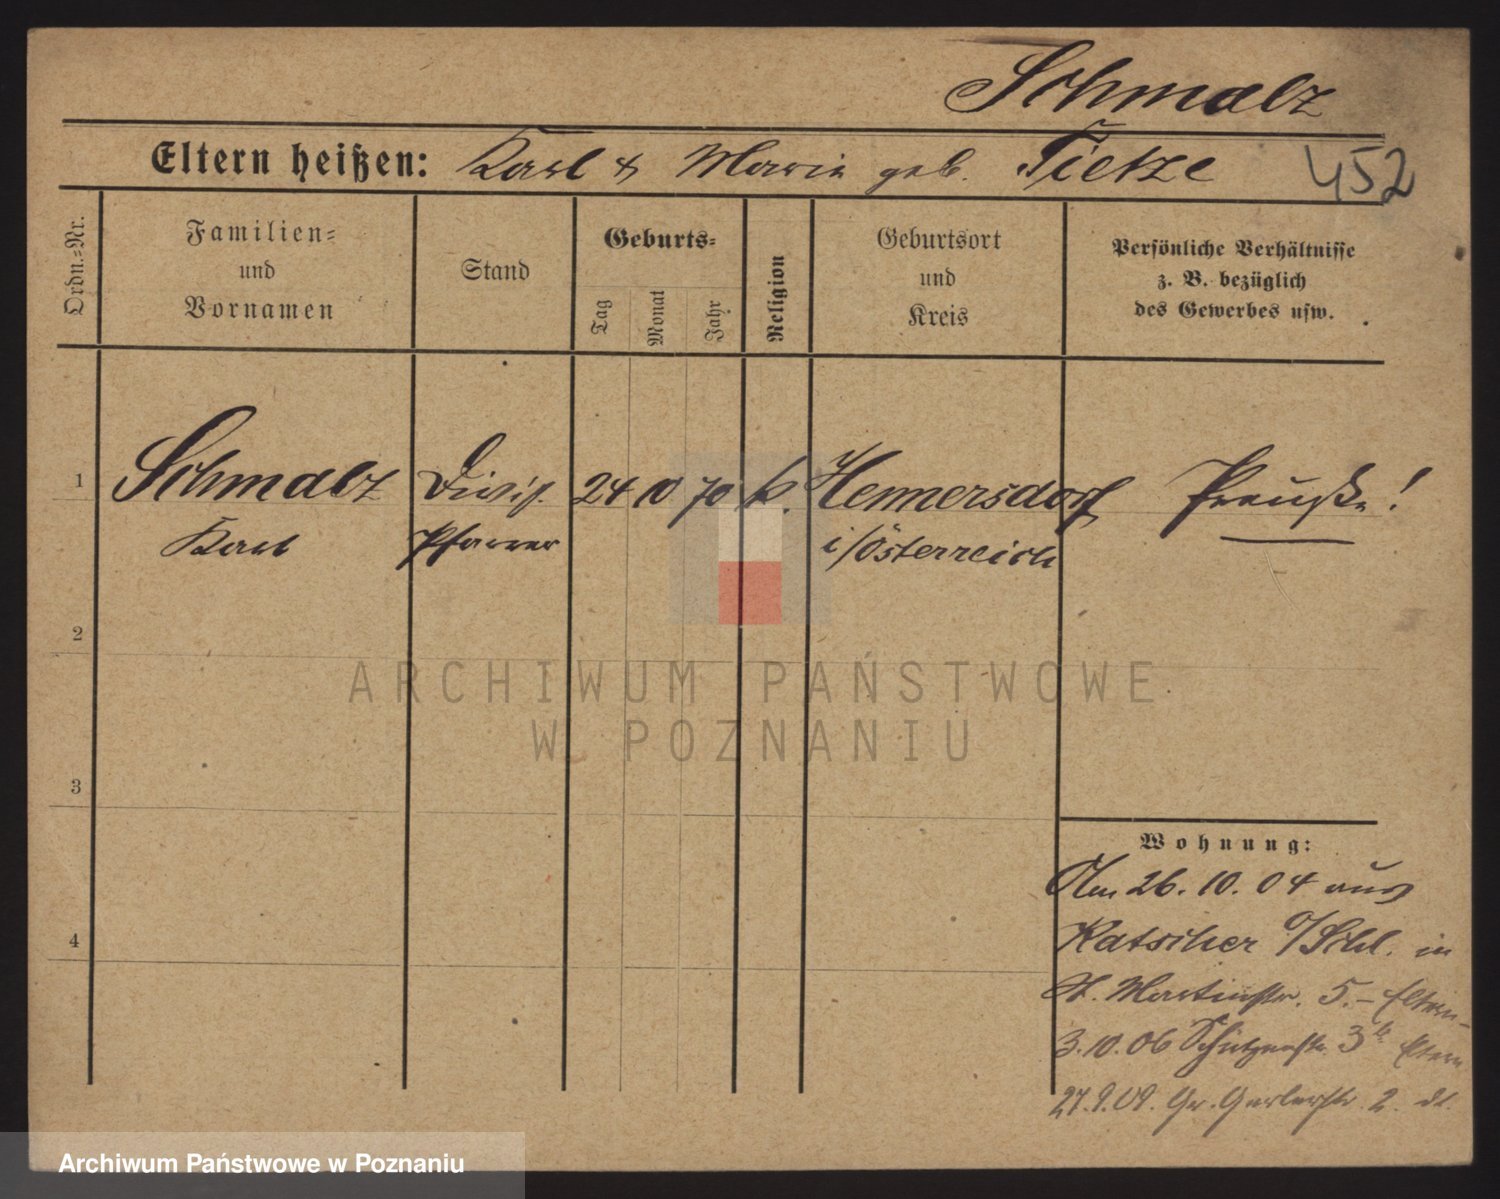 Schmalz
Eltern heißen: Karl & Marie geb. Tietze
452
Ordn.-Nr.
Familien-
und
Vornamen
Stand
Geburts-
Tag
Monat
Jahr
Religion
Geburtsort
und
Kreis
Persönliche Verhältnisse
z. B. bezüglich
des Gewerbes usw.
1 Schmalz Divis. 24 10 70 k. Hennersdorf Preuße!
Karl Pfarrer i/Österreich
2
3
4
Wohnung:
Am 26. 10. 04 aus
Katscher O/Schl. in
St. Martinstr. 5. - Eltern -
3. 10. 06 Schützenstr. 3b Eltern
27. 9. 09. Gr. Gerberstr. 2.
ARCHIWUM PAŃSTWOWE
W POZNANIU
Archiwum Państwowe w Poznaniu